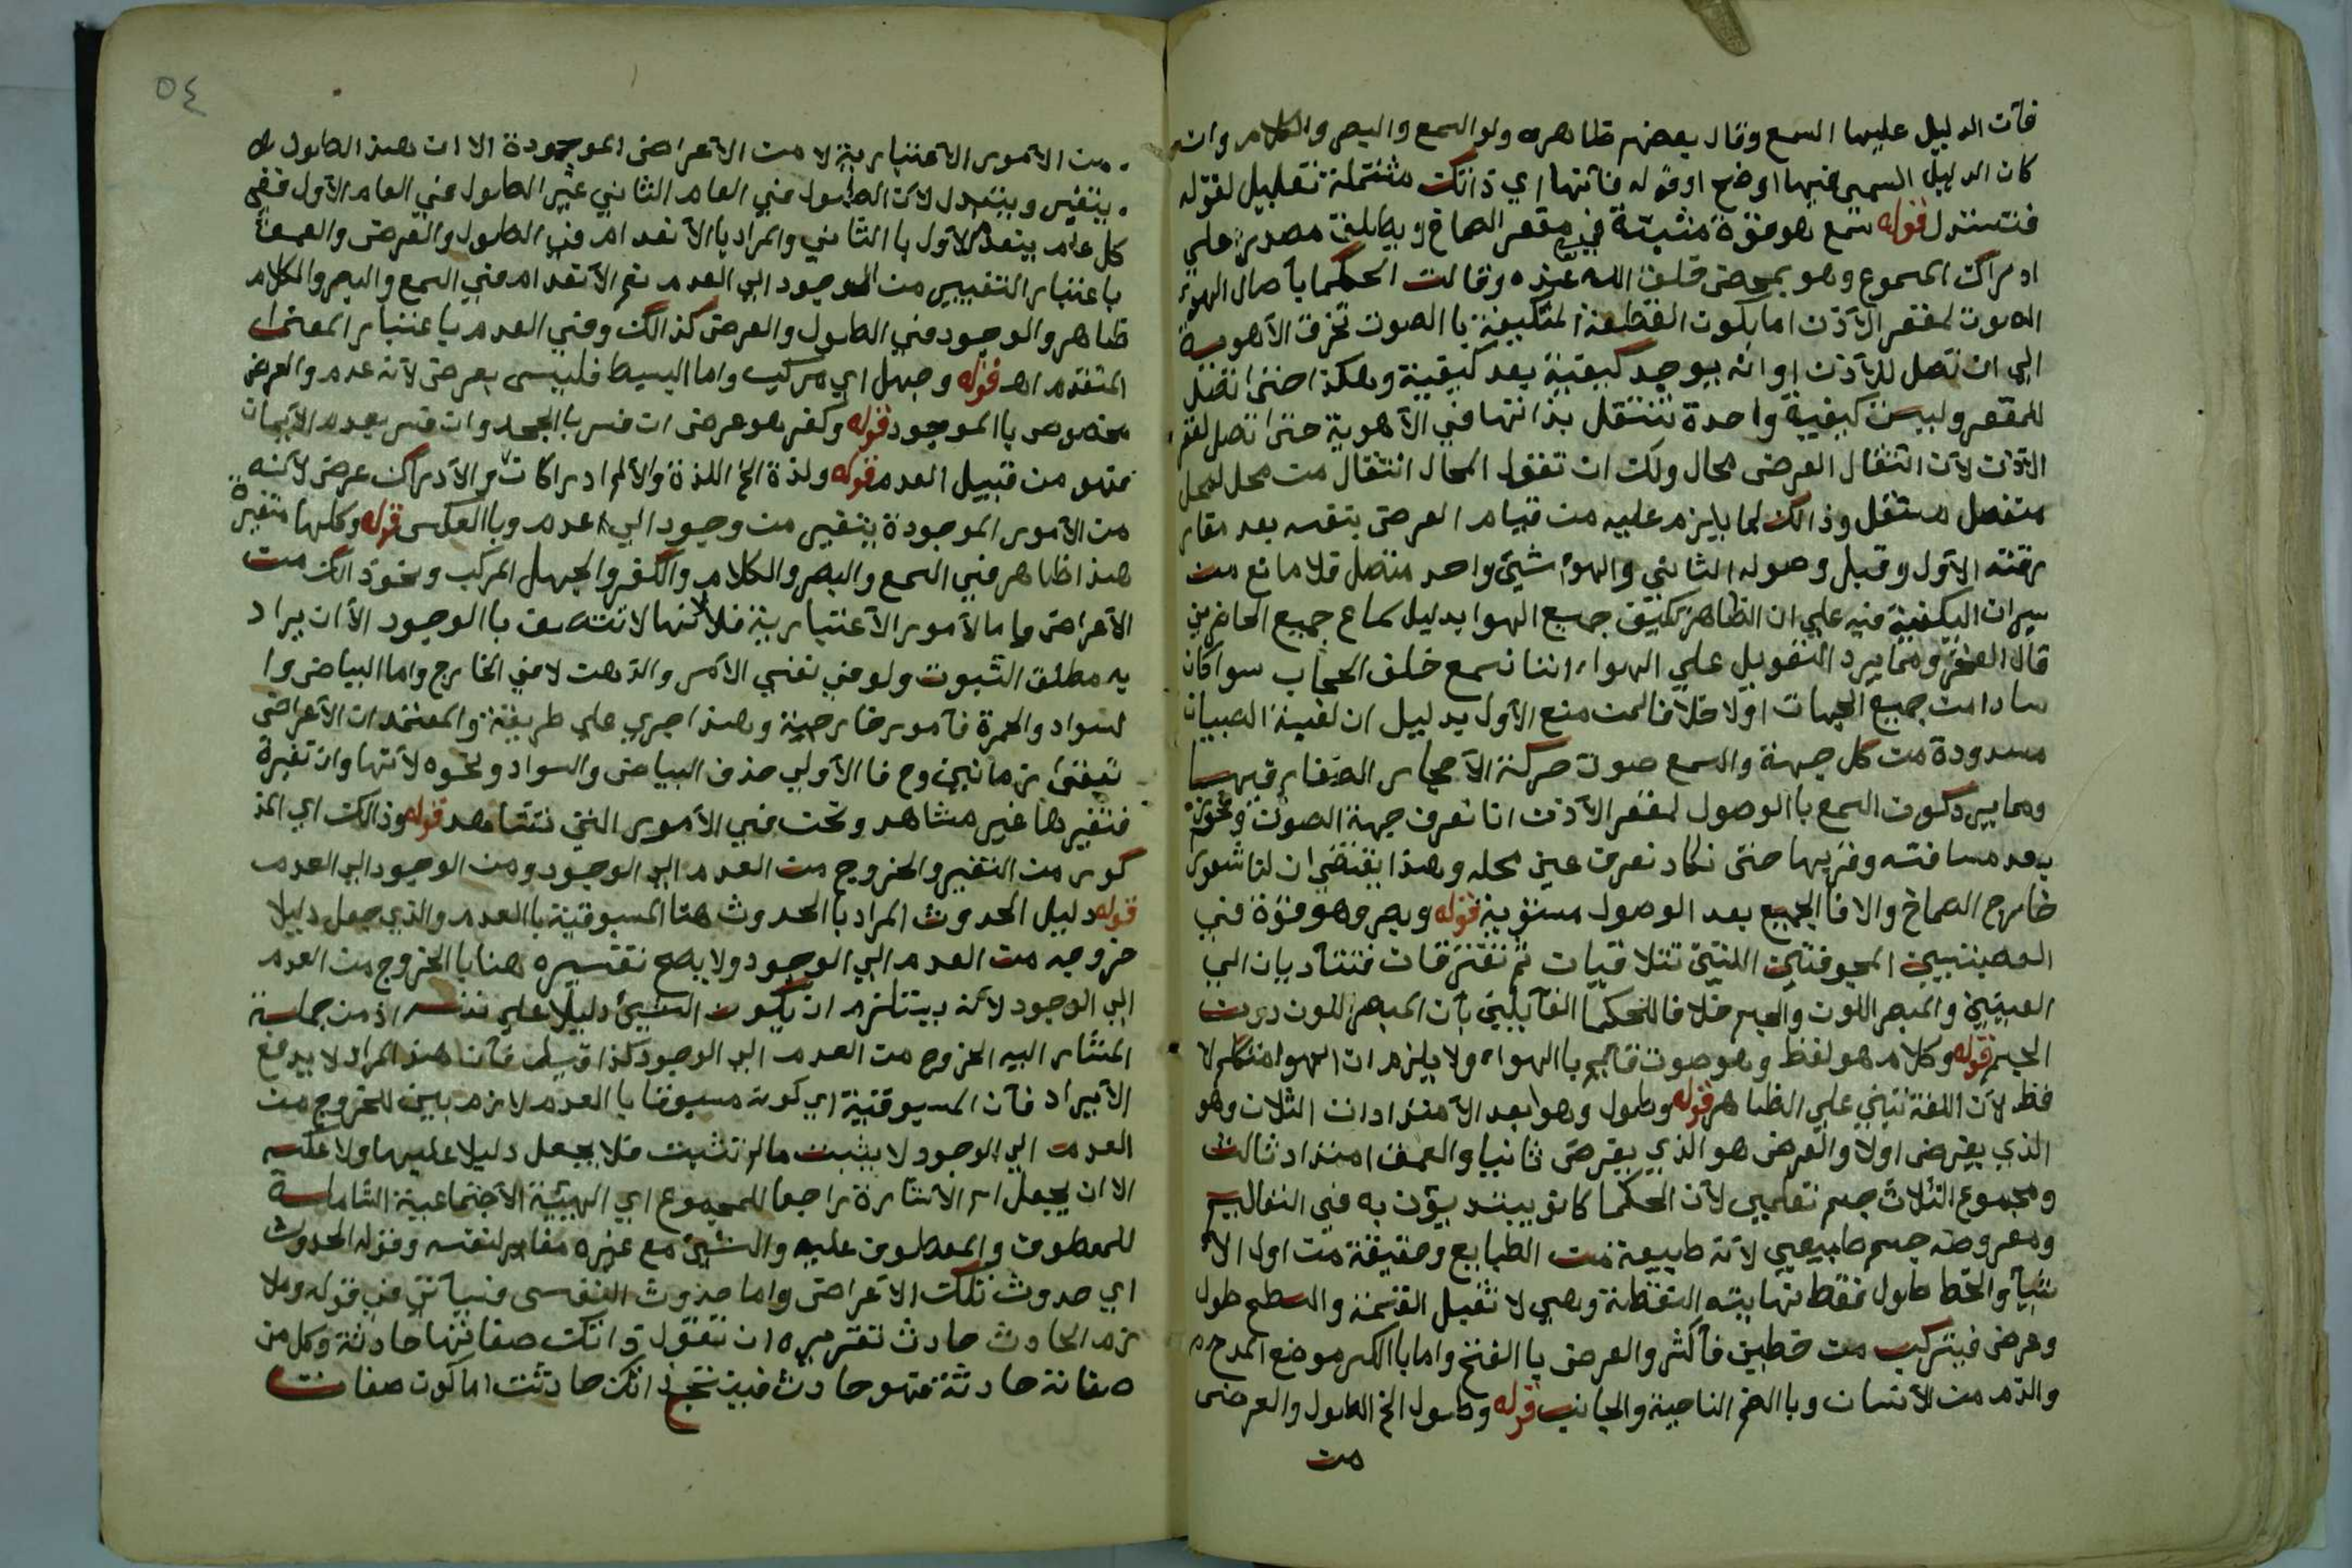 فآن الدليل عليها السمع وقال بعضهم ظاهره ولو السمع والبصر والكلام وان
كان الدليل السمعي فيها اوضح او قوله فآنها اي ذاتك مشتملة تعليل لقوله
فتستدل قوله سمع هو قوة مثبتة في مقعر الصماخ ويطلق مصدر علي
ادراك المسموع وهو بمحض خلق الله عنده وقالت الحكما بآصال الهوء
الصوت لمقعر الآذن اما بكون القطعة المتكيفة باالصوت تخرق الآهوية
الي ان تصل للآذن او انه يوجد كيفية بعد كيفية وهكذا حتى تصل
للمقعر وليست كيفية واحدة تنتقل بذاتها في الآهوية حتى تصل لمقعر
الآذن لآن انتقال العرض محال ولك ان تقول المحال انتقال من محل لمحل
منفصل مستقل وذالك لما يلزم عليه من قيام العرض بنفسه بعد مفار
رقته الآول وقبل وصوله الثاني والهوا شيئ واحد متصل فلا مانع من
سيران الكيفية فيه علي ان الظاهر تكيف جميع الهوا بدليل سماع جميع الحاضرين
قال ومما يرد التعويل علي الهواء اننا نسمع خلف الحجاب سوا كان
سادا من جميع الجهات اولا فلا منع الآول بدليل ان لعبة الصبيان
مسدودة من كل جهة والسمع صوت حركة الآحجار الصغار فيها
ومما يرد كون السمع باالوصول لمقعر الآذن انا نعرف جهة الصوت ونحو
بعد مسافته وقربها حتى نكاد نعرف عين محله وهذا يقتضي ان لنا شعورا
خارج الصماخ والا فاالجميع بعد الوصول مستوية قوله وبصر وهو قوة في
العصبتيين المجوفتين اللتيتي تتلاقيان ثم تفترقان فتتآديان الي
العينين والمبصر اللون والجسم خلافا للحكما القآيلين بآن المبصر اللون دون
الجسم قوله وكلام هو لفظ وهو صوت قآيم باالهواء ولا يلزم ان الهوا متكلم لا
فظ لآن اللغة تبني علي الظاهر قوله وطول وهو ابعد الآمتدادات الثلاث وهو
الذي يفرض اولا والعرض هو الذي يفرض ثانيا والعمق امتداد ثالث
ومجموع الثلاث جسم تعلميي لآن الحكما كانو يبتديؤن به في التعاليم
ومعروضه جسم طبيعي لآنه طبيعة من الطبايع وحقيقة من اول الآ
شيآ والخط طول فقط نهايته النقطة وهي لا تقبل القسمة والسطح طول
وعرض فيتركب من خطين فآكثر والعرض باالفتح واما باالكسر موضع المدح
والذم من الآنسان وباالضم الناحية والجانب قوله وطول الخ الطول والعرض
من
٥٤
من الآمور الآعتبارية لا من الآعراض الموجودة الا ان هذ الطول
يتغير ويتبدل لآن الطول في العام الثاني غير الطول في العام الآول ففي
كل عام يتعدم الآول باالثاني والمراد باالآنعدام في الطول والعرض والعمق
باعتبار التغيير من الوجود الي العدم ثم الآنعدام في السمع والبصر والكلام
ظاهر والوجود في الطول والعرض كذالك وفي العدم باعتبار المعنى
المتقدم اهـ قوله وجهل اي مركب واما البسيط فليس بعرض لآنه عدم والعرض
مخصوص باالموجود قوله وكفر هو عرض ان فسر باالجحد وان فسر بعدم الآيمان
فهو من قبيل العدم قوله ولذة الخ اللذة والآلم ادراكان والآدراك عرض لآنه
من الآمور الموجودة يتغير من وجود الي عدم وباالعكس قوله وكلها متغيرة
هذا ظاهر في السمع والبصر والكلام والكفر والجهل المركب ونحو ذالك من
الآعراض واما الآمور الآعتبارية فلآنها لا تتصف باالوجود الآ ان يراد
به مطلق الثبوت ولو في نفس الآمر والذهن لا في الخارج واما البياض وا
لسواد والحمرة فآمور خارجية وهذا جري علي طريقة والمعتمد ان الآعراض
تبقى زمانين وح فا الآولي حذف البياض والسواد ونحوه لآنها وان تغيرة
فتغيرها غير مشاهد ونحن في الآمور التي تشاهد قوله وذالك اي المذ
كور من التغير والخروج من العدم الي الوجود ومن الوجود الي العدم
قوله دليل الحدوث المراد باالحدوث هنا المسبوقية باالعدم والذي جعل دليلا
خروجه من العدم الي الوجود ولا يصح تفسيره هنا باالخروج من العدم
الي الوجود لآنه يستلزم ان يكون الشيئ دليلا علي نفسه اذ من جملة
المشار اليه الخروج من العدم الي الوجود كذا قيل فآن هذ المراد لا يدفع
الآيراد فآن المسبوقية اي كونه مسبوقا باالعدم لازم بين للخروج من
العدم الي الوجود لا يثبت مالم تثبت فلا يجعل دليلا عليها ولا عكسه
الا ان يجعل اسم الآشارة راجعا للمجموع اي الهيئة الآجتماعية الشاملة
للمعطوف والمعطوف عليه والشيئ مع غيره مغاير لنفسه وقوله الحدوث
اي حدوث تلك الآعراض واما حدوث النفس فسيآتي في قوله وملا
زم الحادث حادث تقريره ان تقول ذاتك صفاتها حادثة وكل من
صفاته حادثة فهو حادث فينتج ذاتك حادثت اما كون صفات